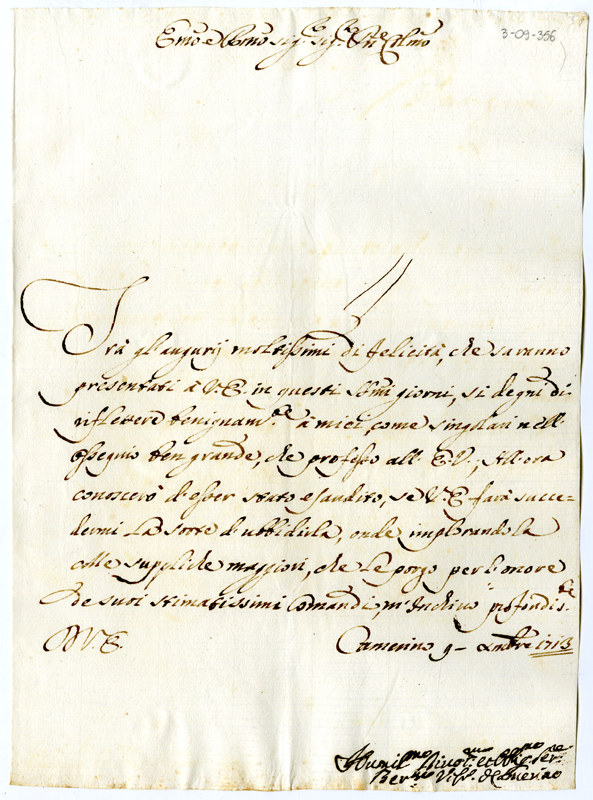 3-09-356
Em̃o e Rm̃o Sig.r Sig.r Pne Colmo
Trà gl'augurij moltissimi di felicità, che saranno
presentati à V.E. in questi Sm̃i giorni, si degni di
riflettere benignam.te à miei, come singolari nell'
ossequio ben grande, che professo all'E.V.; All'ora
conoscerò d'esser stato esaudito, se V.E. farà succe-
dermi la sorte d'ubbidirla, onde implorandola
colle suppliche maggiori, che le porgo per l'onore
de suoi stimatissimi Comandi, m'Inchino profondis.te
D V.E. Camerino 9 Xmbre 1713
Humil.mo Divot.mo et Obblig.mo Ser.re
Ber.no Vesc.o di Camerino